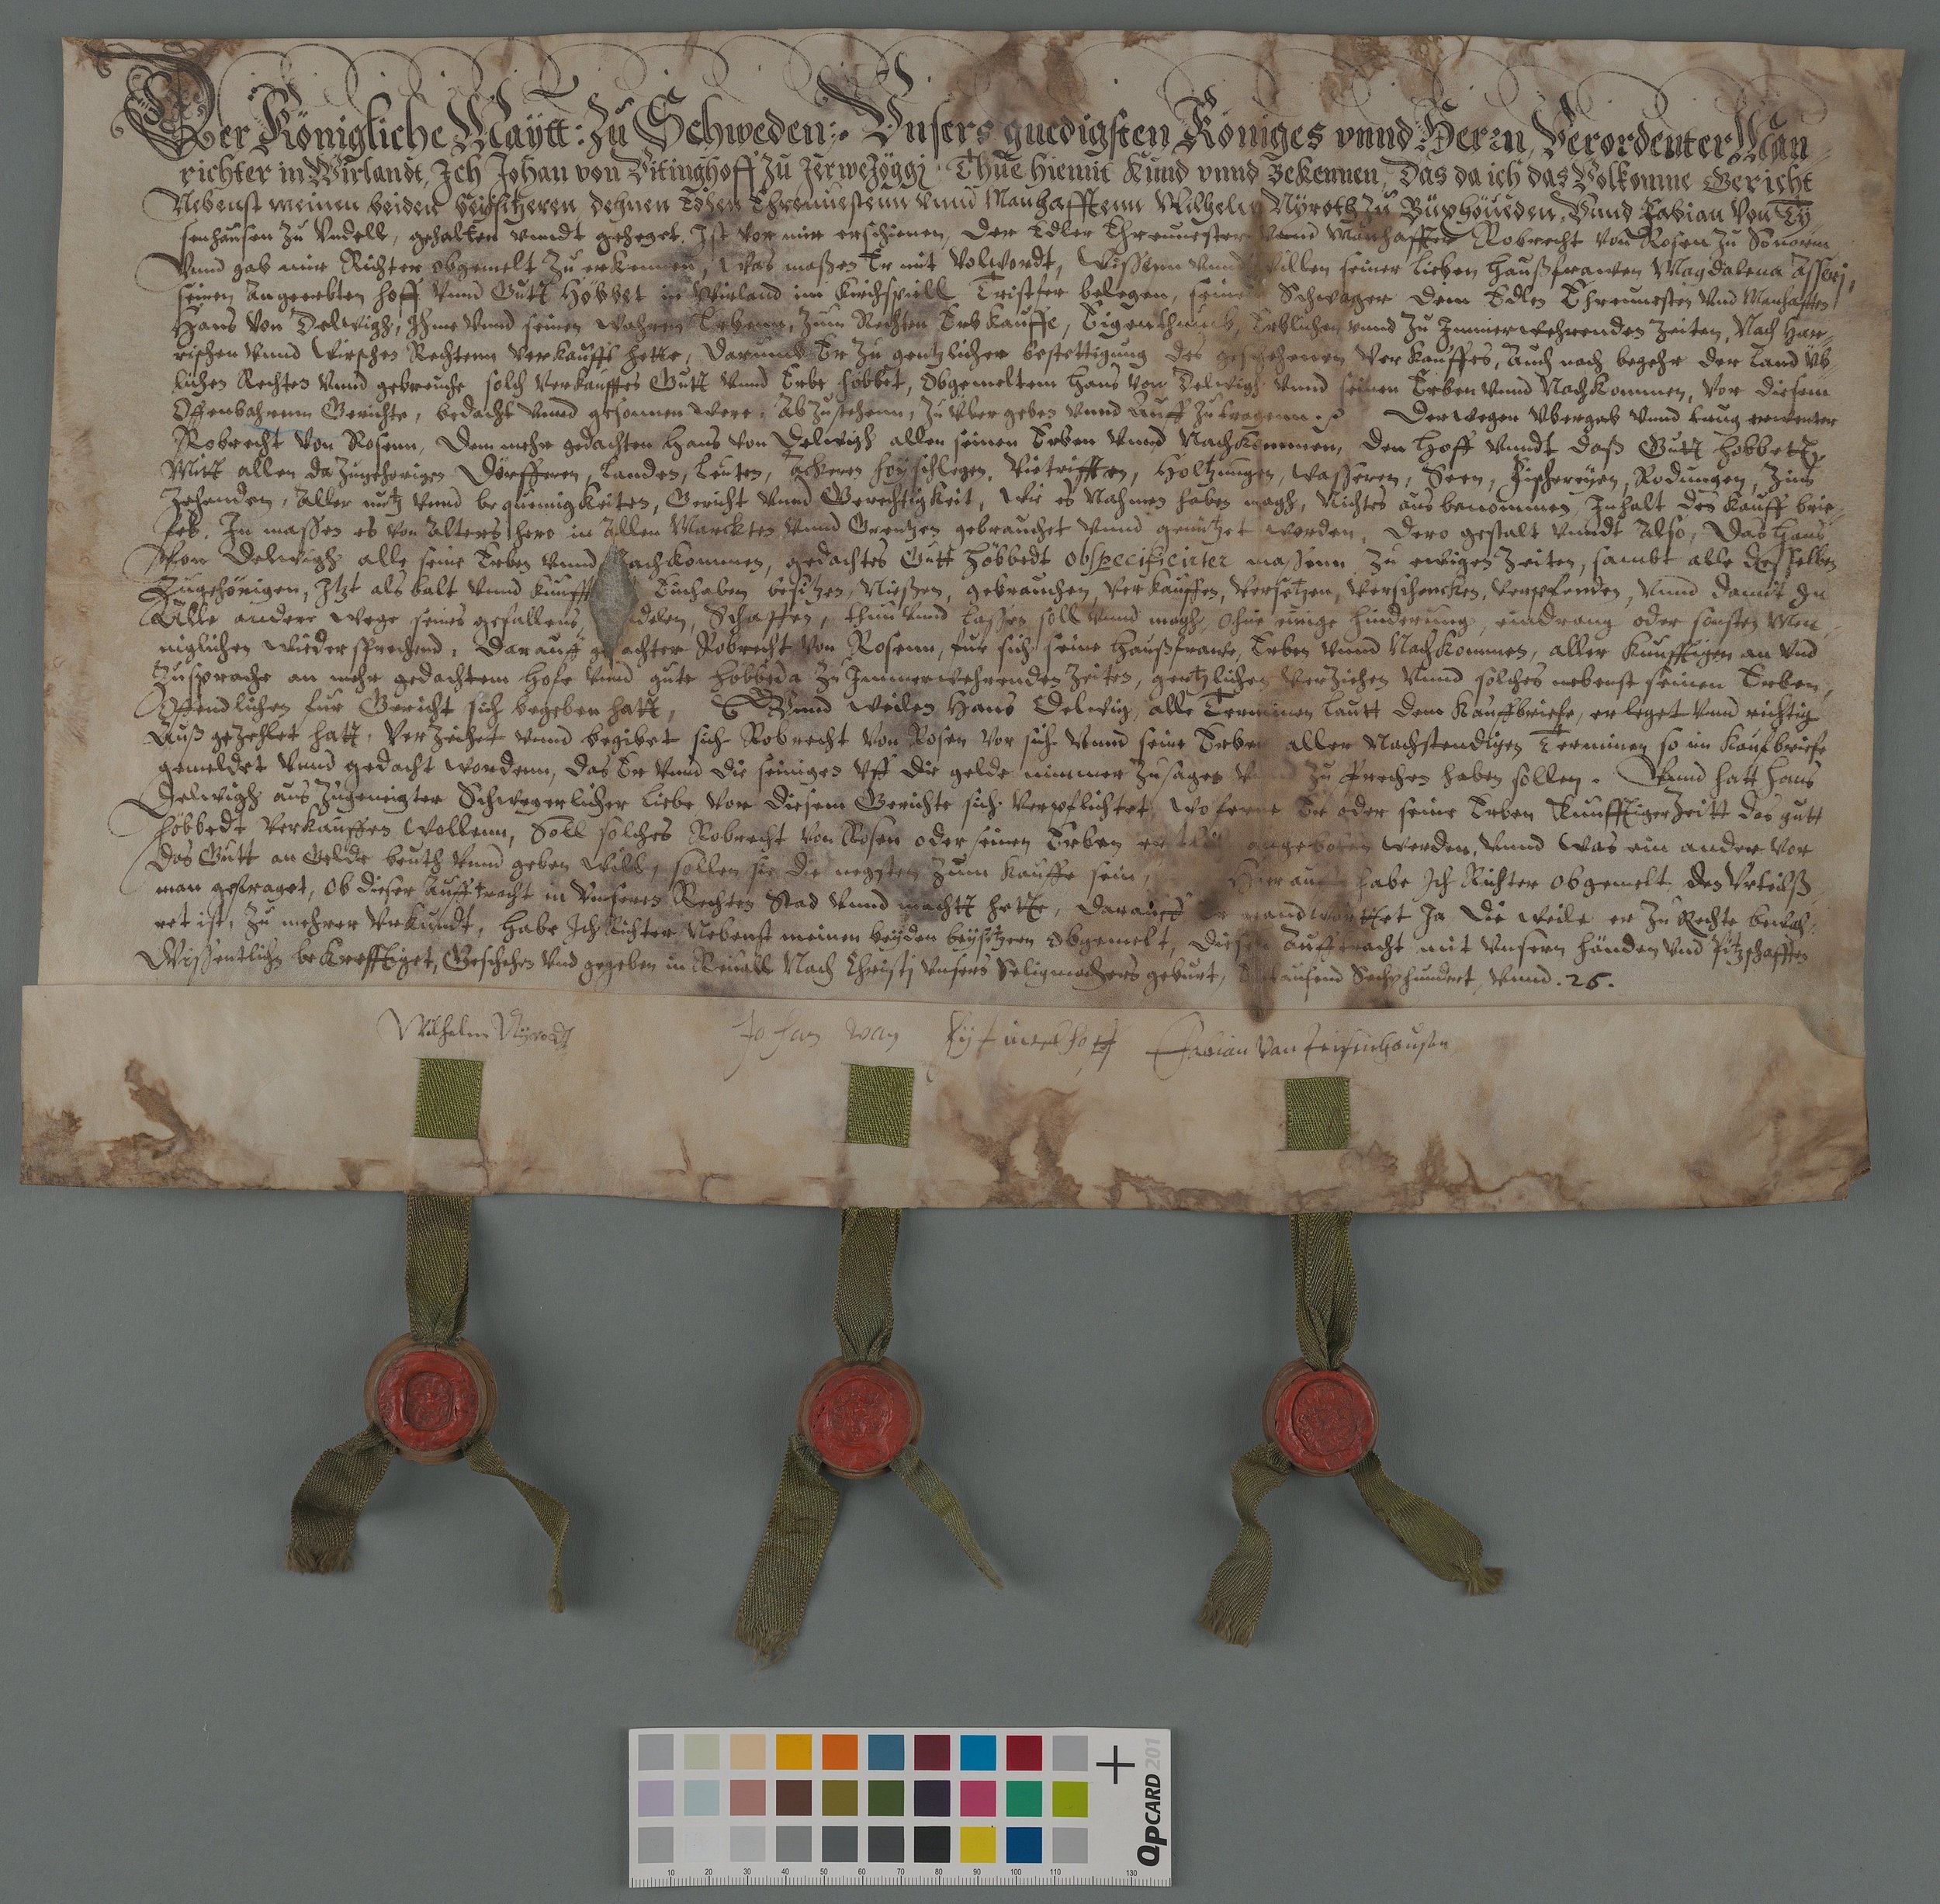 Der Königliche Maÿtt: Zu Schweden:. Vnsers gnedigsten Königes vnnd Herrn, Verordenter Man
richter in Wirlandt, Ich Johan von Vitinghoff zu Zerwejöggj Thue hiemit Kund vnnd Bekennen, Das da ich das Volkomne Gericht
Nebenst meinen beiden beÿsitzeren, dehnen Edlen Ehrenuestenn vnnd Manhafftenn Wilhelm Nÿroth zu Büxhöueden, Vnnd Fabian Von Tÿ
senhausen zu Vndell, gehalten vnndt geheget. Ist vor mir erschienen, Der Edler Ehrenuester Vnnd Manhaffter Robrecht von Rosen zu Sonorm
Vnnd gab mir Richter obgemelt zu erkennen, Was maßen Er mit Volwordt, Wissenn vnnd willen seiner lieben Haußfrawen Magdalena Asserj,
seinen angeerbten Hoff vnnd Gutt Höbbet in Wirland im Kirchspiell Tristfer belegen, seinem Schwager dem Edlen Ehrenuesten vnd Manhafften
Hans von Delwigh, Ihme vnnd seinen wahren Erbenn, Zum Rechten Erb Kauffe, Eigenthumb, Erblichen vnnd Zu Immerwehrenden Zeiten, Nach Har-
rischen vnnd Wirschen Rechtenn Verkaufft hette, Darumb Er zu gentzlicher bestettigung des geschehenen Verkauffes, Auch nach begehr der Land üb-
lichen Rechten vnnd gebreuche solch Verkaufftes Gutt vnnd Erbe Höbbet, Obgemeltem Hans von Delwigh vnnd seinen Erben vnnd Nachkommen, vor diesem
Offenbahrenn Gerichte, bedacht vnnd gesonnen were, Abzustehenn, Zu Vbergeben vnnd Auff zu tragenn. Derwegen Vbergab vnnd trug erwenter
Robrecht von Rosenn, Dem mehr gedachten Hans von Delwigh allen seinen Erben vnnd Nachkommen, den Hoff vnndt daß Gutt Höbbett,
Mitt allen da zugehörigen Dörfferen, Landen, Leuten, Ackeren Höÿschlegen, Vietrifften, Holtzungen, Wasseren, Seen, Fischereÿen, Rodungen, Zins
Zehenden, Aller nutz vnnd bequemigkeiten, Gericht vnnd Gerechtigkeit, Wie es Nahmen haben magh, Nichtes aus benommen, Inhalt des Kauff brie-
fes, In massen es von Alters hero in Allen Marckten vnnd Grentzen gebrauchet vnnd genützet worden, Dero gestalt vnndt Also, Das Hans
Von Delwigh alle seine Erben vnnd Nachkommen, gedachtes Gutt Höbbedt obspecificirter massenn zu ewigen Zeiten, sambt alle desselben
Zugehörigen, Itzt als balt vnnd Kunff Einhaben besitzen, Nießen, gebrauchen, Verkauffen, Versetzen, Verschencken, Verpfenden, Vnnd damit In
Alle andere Wege seines gefallens, delen, Schaffen, thun vnnd lassen soll vnnd magh, Ohne einige Hinderung, eindrang oder sonsten Men-
niglichen wiedersprechend. Darauff gedachter Robrecht von Rosenn, fur sich seine Haußfrawe, Erben vnnd Nachkommen, aller Kunfftigen an vnd
Zusprache an mehr gedachtem Hofe vnnd gute Höbbeda zu Immerwehrenden Zeiten, gentzlichen Verziehen vnnd solches nebenst seinen Erben,
Offendlichen fur Gericht sich begeben hatt, Vnnd weilen Hans Delwig, alle Terminen lautt dem Kauffbriefe, erleget vnnd richtig
Auß gezehlet hatt, Verzeihet vnnd begibet sich Robrecht von Rosen vor sich vnnd seine Erben aller Nachstendigen Terminen so im Kaufbriefe
gemeldet vnnd gedacht wordenn, Das Er vnnd die seinigen Vff die gelde nimmer Zusagen vnnd Zu sprechen haben sollen. Vnnd hatt Hans
Delwigh aus zugeneigter Schwegerlicher liebe Vor diesem Gerichte sich Verpflichtet, Woferne Er oder seine Erben Kunfftiger Zeitt das gutt
Höbbedt Verkauffen wollenn, Soll solches Robrecht von Rosen oder seinen Erben angeboten werden, Vnnd was ein ander vor
das Gutt an Gelde beuth vnnd geben will, sollen sie die negsten zum Kauffe sein, Hierauff habe Ich Richter obgemelt, den Vrteilß
man gefraget, Ob dieser Aufftracht in Vnseren Rechten Stad vnnd machtt hette, Darauff Er geandtworttet Ja die weile er zu Rechte bewah-
ret ist, Zu mehrer Vrkundt, habe Ich Richter Nebenst meinen beÿden beÿsitzern obgemelt, diesen Aufftracht mit Vnsern Händen vnd Pitzschafften
Wissentlichen bekrefftiget, Geschehen vnd gegeben in Reuall Nach Christj vnsers Seligmachers geburt, Eintausend Sechshundert, vnnd .26.
Wilhelm Nÿrodt
Johan van Fytinckhoff
Fabian Van Teisenhausen
10 20 30 40 50 60 70 80 90 100 110 130
QPCARD 201